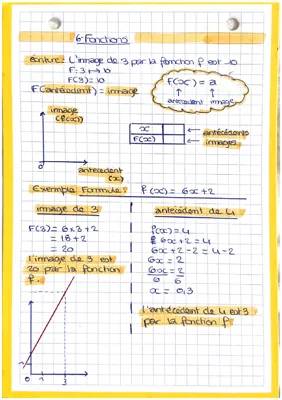 6-Fonctions
écriture: L'image de 3 par la fonction f est 10
F: 3 ↦ 10
F(3) = 10
F(antécédent) = image
F(x) = a
antécédent image
image
(f(x))
antécédent
(x)
x ← antécédents
F(x) ← images
Exemple Formule: f(x) = 6x+2
image de 3
F(3) = 6x3+2
= 18+2
= 20
l'image de 3 est
20 par la fonction
f.
0 1 3
antécédent de 4
f(x) = 4
6x+2 = 4
6x+2-2 = 4-2
6x = 2
6x = 2
6 6
x = 0,3
l'antécédent de 4 est 3
par la fonction f